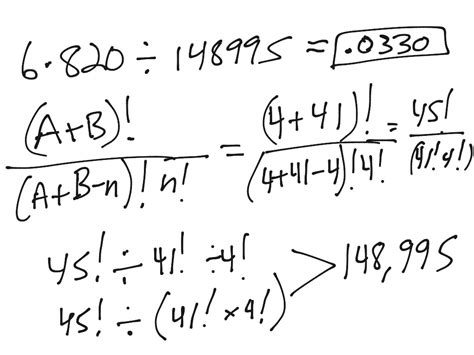 6·820 ÷ 148995 = .0330
(A+B)! / (A+B-n)! n! = (4+41)! / (4+41-4)! 4! = 45! / (41! 4!)
45! ÷ 41! ÷ 4!
45! ÷ (41! × 4!) > 148,995